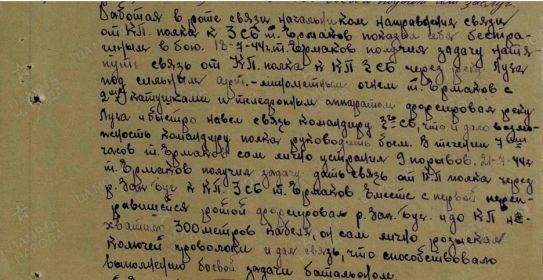 Работая в роте связи начальником направления связи
от КП. полка к 3 СБ т. Ермаков показал себя бесстра-
шным в бою. 18-7-44 т. Ермаков получил задачу натя-
нуть связь от КП. полка к КП 3 СБ через реку Луга
под сильным арт.-минометным огнем т. Ермаков с
2мя катушками и телефонным аппаратом форсировал реку
Луга и быстро навел связь командиру 3го СБ, что и дало возмо-
жность командиру полка руководить боем. В течении 7ми
часов т. Ермаков сам лично устранил 9 порывов. 21-7-44г
т. Ермаков получил задачу дать связь от КП полка через
р. Зап. Буг к КП 3 СБ т. Ермаков вместе с первой переп-
равившейся ротой форсировал р. Зап. Буг. и до КП не-
хватило 300 метров кабеля, он сам лично розыскал
колючей проволоки и дал связь, что способствовало
выполнению боевой задачи батальоном